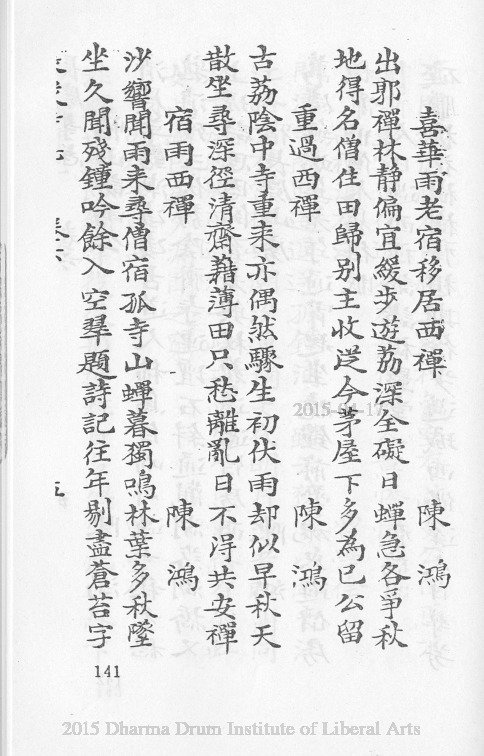 喜華雨老宿移居西禪 陳鴻
出郭禪林静偏宜緩步遊荔深全礙日蟬急各爭秋
地得名僧住田歸别主收從今茅屋下多為已公留
重過西禪 陳鴻
古荔陰中寺重来亦偶然驟生初伏雨却似早秋天
散坐尋深徑清齋藉薄田只愁離亂日不得共安禪
宿雨西禪 陳鴻
沙響聞雨来尋僧宿孤寺山蟬暮獨鳴林葉多秋墜
坐久聞殘鐘吟餘入空翠題詩記往年剔盡蒼苔字
五
141
2015 Dharma Drum Institute of Liberal Arts